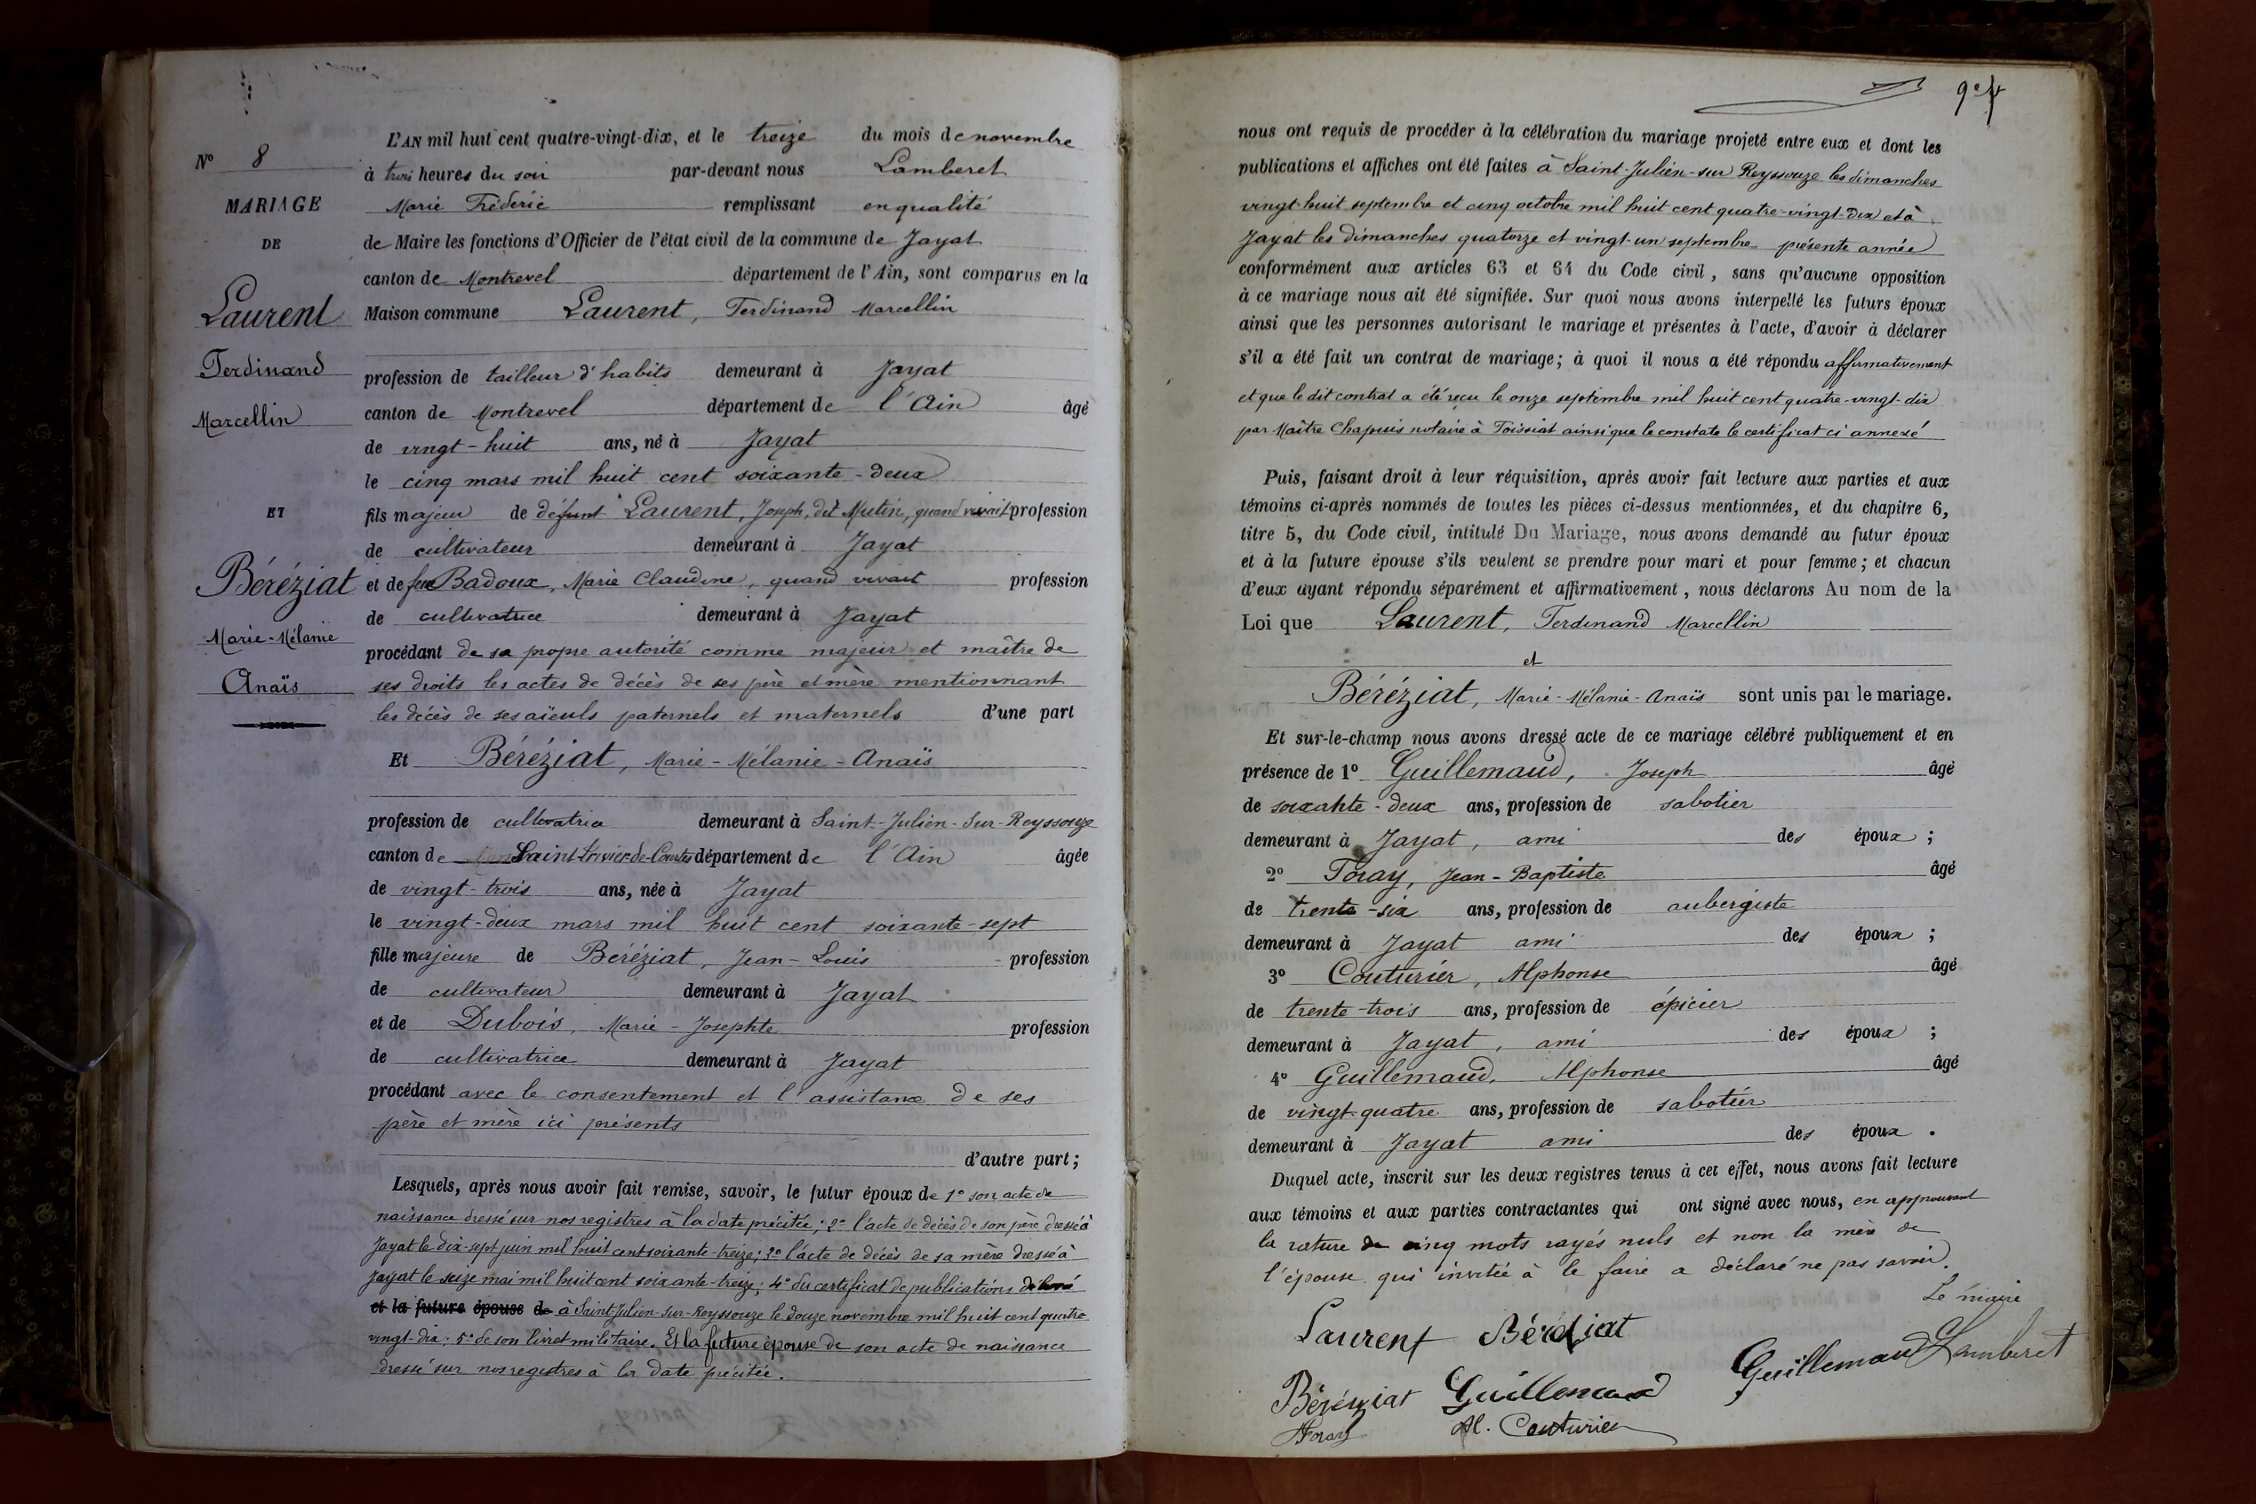 L'AN mil huit cent quatre-vingt-dix, et le treize du mois de novembre
à trois heures du soir par-devant nous Lamberet
Marie Fréderic remplissant en qualité
de Maire les fonctions d'Officier de l'état civil de la commune de Jayat
canton de Montrevel département de l'Ain, sont comparus en la
Maison commune Laurent, Ferdinand Marcellin
profession de tailleur d'habits demeurant à Jayat
canton de Montrevel département de l'Ain âgé
de vingt-huit ans, né à Jayat
le cinq mars mil huit cent soixante-deux
fils majeur de défunt Laurent, Joseph, dit Mutin, quand vivait profession
de cultivateur demeurant à Jayat
et de feue Badoux, Marie Claudine, quand vivait profession
de cultivatrice demeurant à Jayat
procédant de sa propre autorité comme majeur et maître de
ses droits les actes de décès de ses père et mère mentionnant
les décès de ses aïeuls paternels et maternels d'une part
Et Béréziat, Marie-Mélanie-Anaïs
profession de cultivatrice demeurant à Saint-Julien-sur-Reyssouze
canton de Saint-Trivier-de-Courtes département de l'Ain âgée
de vingt-trois ans, née à Jayat
le vingt-deux mars mil huit cent soixante-sept
fille majeure de Béréziat, Jean-Louis profession
de cultivateur demeurant à Jayat
et de Dubois, Marie-Josephte profession
de cultivatrice demeurant à Jayat
procédant avec le consentement et l'assistance de ses
père et mère ici présents
d'autre part;
Lesquels, après nous avoir fait remise, savoir, le futur époux de 1° son acte de
naissance dressé sur nos registres à la date précitée; 2° l'acte de décès de son père dressé à
Jayat le dix-sept juin mil huit cent soixante-treize; 3° l'acte de décès de sa mère dressé à
Jayat le seize mai mil huit cent soixante-treize; 4° du certificat de publications délivré
et la future épouse de à Saint Julien-sur-Reyssouze le douze novembre mil huit cent quatre
vingt-dix; 5° de son livret militaire. Et la future épouse de son acte de naissance
dressé sur nos registres à la date précitée.
N° 8
MARIAGE
DE
Laurent
Ferdinand
Marcellin
ET
Béréziat
Marie-Mélanie
Anaïs
nous ont requis de procéder à la célébration du mariage projeté entre eux et dont les
publications et affiches ont été faites à Saint-Julien-sur Reyssouze les dimanches
vingt-huit septembre et cinq octobre mil huit cent quatre-vingt-dix et à
Jayat les dimanches quatorze et vingt-un septembre présente année
conformément aux articles 63 et 64 du Code civil, sans qu'aucune opposition
à ce mariage nous ait été signifiée. Sur quoi nous avons interpellé les futurs époux
ainsi que les personnes autorisant le mariage et présentes à l'acte, d'avoir à déclarer
s'il a été fait un contrat de mariage; à quoi il nous a été répondu affirmativement
et que le dit contrat a été reçu le onze septembre mil huit cent quatre-vingt-dix
par Maître Chapuis notaire à Foissiat ainsi que le constate le certificat ci annexé
Puis, faisant droit à leur réquisition, après avoir fait lecture aux parties et aux
témoins ci-après nommés de toutes les pièces ci-dessus mentionnées, et du chapitre 6,
titre 5, du Code civil, intitulé Du Mariage, nous avons demandé au futur époux
et à la future épouse s'ils veulent se prendre pour mari et pour femme; et chacun
d'eux ayant répondu séparément et affirmativement, nous déclarons Au nom de la
Loi que Laurent, Ferdinand Marcellin
et
Béréziat, Marie-Mélanie-Anaïs sont unis par le mariage.
Et sur-le-champ nous avons dressé acte de ce mariage célébré publiquement et en
présence de 1° Guillemaud, Joseph âgé
de soixante-deux ans, profession de sabotier
demeurant à Jayat, ami des époux;
2° Foray, Jean-Baptiste âgé
de trente-six ans, profession de aubergiste
demeurant à Jayat ami des époux;
3° Couturier, Alphonse âgé
de trente-trois ans, profession de épicier
demeurant à Jayat, ami des époux;
4° Guillemaud, Alphonse âgé
de vingt-quatre ans, profession de sabotier
demeurant à Jayat ami des époux.
Duquel acte, inscrit sur les deux registres tenus à cet effet, nous avons fait lecture
aux témoins et aux parties contractantes qui ont signé avec nous, en approuvant
la rature de cinq mots rayés nuls et non la mère de
l'épouse qui invitée à le faire a déclaré ne pas savoir.
Le maire
Laurent Béréziat
Guillemaud Lamberet
Béréziat Guillemaud
Foray Al. Couturier